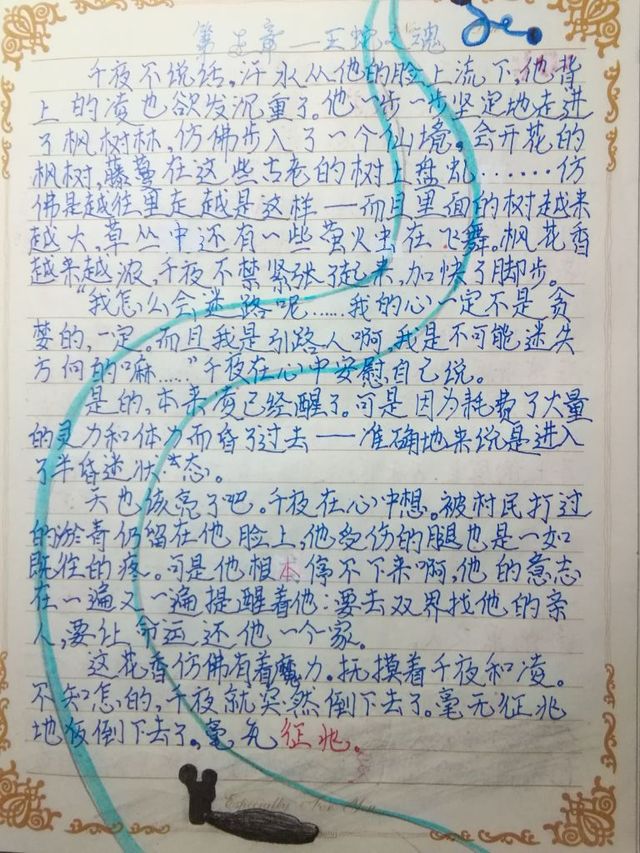 第五章——王蛇之魂
千夜不说话，汗水从他的脸上流下，他背
上的凌也欲发沉重了。他一步一步坚定地走进
了枫树林，仿佛步入了一个仙境。会开花的
枫树，藤蔓在这些古老的树上盘虬……仿
佛是越往里走越是这样——而且里面的树越来
越大，草丛中还有一些萤火虫在飞舞。枫花香
越来越浓，千夜不禁紧张了起来，加快了脚步。
“我怎么会迷路呢……我的心一定不是贪
婪的，一定。而且我是引路人啊，我是不可能迷失
方向的嘛……”千夜在心中安慰自己说。
是的，本来凌已经醒了。可是因为耗费了大量
的灵力和体力而昏了过去——准确地来说是进入
了半昏迷状态。
天也该亮了吧。千夜在心中想。被村民打过
的淤青仍留在他脸上，他受伤的腿也是一如
既往的疼。可是他根本停不下来啊，他的意志
在一遍又一遍提醒着他：要去双界找他的亲
人，要让命运还他一个家。
这花香仿佛有着魔力。抚摸着千夜和凌。
不知怎的，千夜就突然倒下去了。毫无征兆
地倒下去了，毫无征兆。
Especially For You